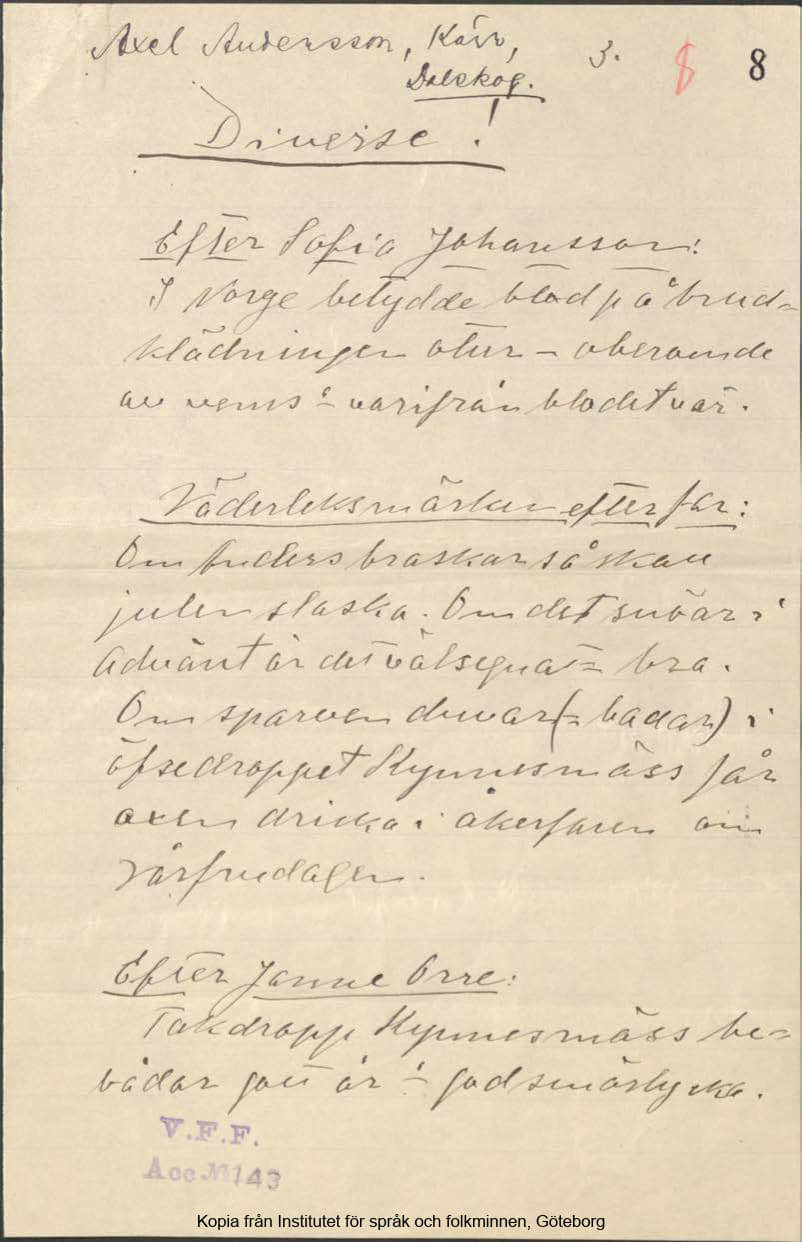 Axel Andersson, Kärr, 3. 8 8
Dalskog.
Diverse!
Efter Sofia Johansson:
I Norge betydde blod på brud=
klädningen otur – oberoende
av vems – varifrån blodet var.
Väderleksmärken efter far:
Om Anders braskar så skall
julen slaska. Om det snöar i
Advänt är det välsigna = bra.
Om sparven duvar (= badar) i
öfsedroppet Kynnesmäss får
oxen dricka i åkerfåren om
Vårfrudagen.
Efter Janne Orre:
Takdropp Kynnesmäss be=
bådar gott år – god smörlycka.
V.F.F.
Acc. № 143
Kopia från Institutet för språk och folkminnen, Göteborg